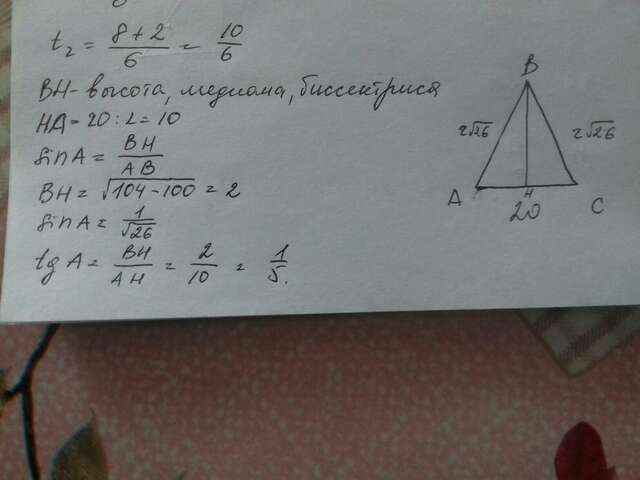 t₂ = (8 + 2)/6 = 10/6
BH - высота, медиана, биссектриса
HA = 20 : 2 = 10
sin A = BH/AB
BH = √(104 - 100) = 2
sin A = 1/√26
tg A = BH/AH = 2/10 = 1/5.
B
2√26 2√26
A H C
20